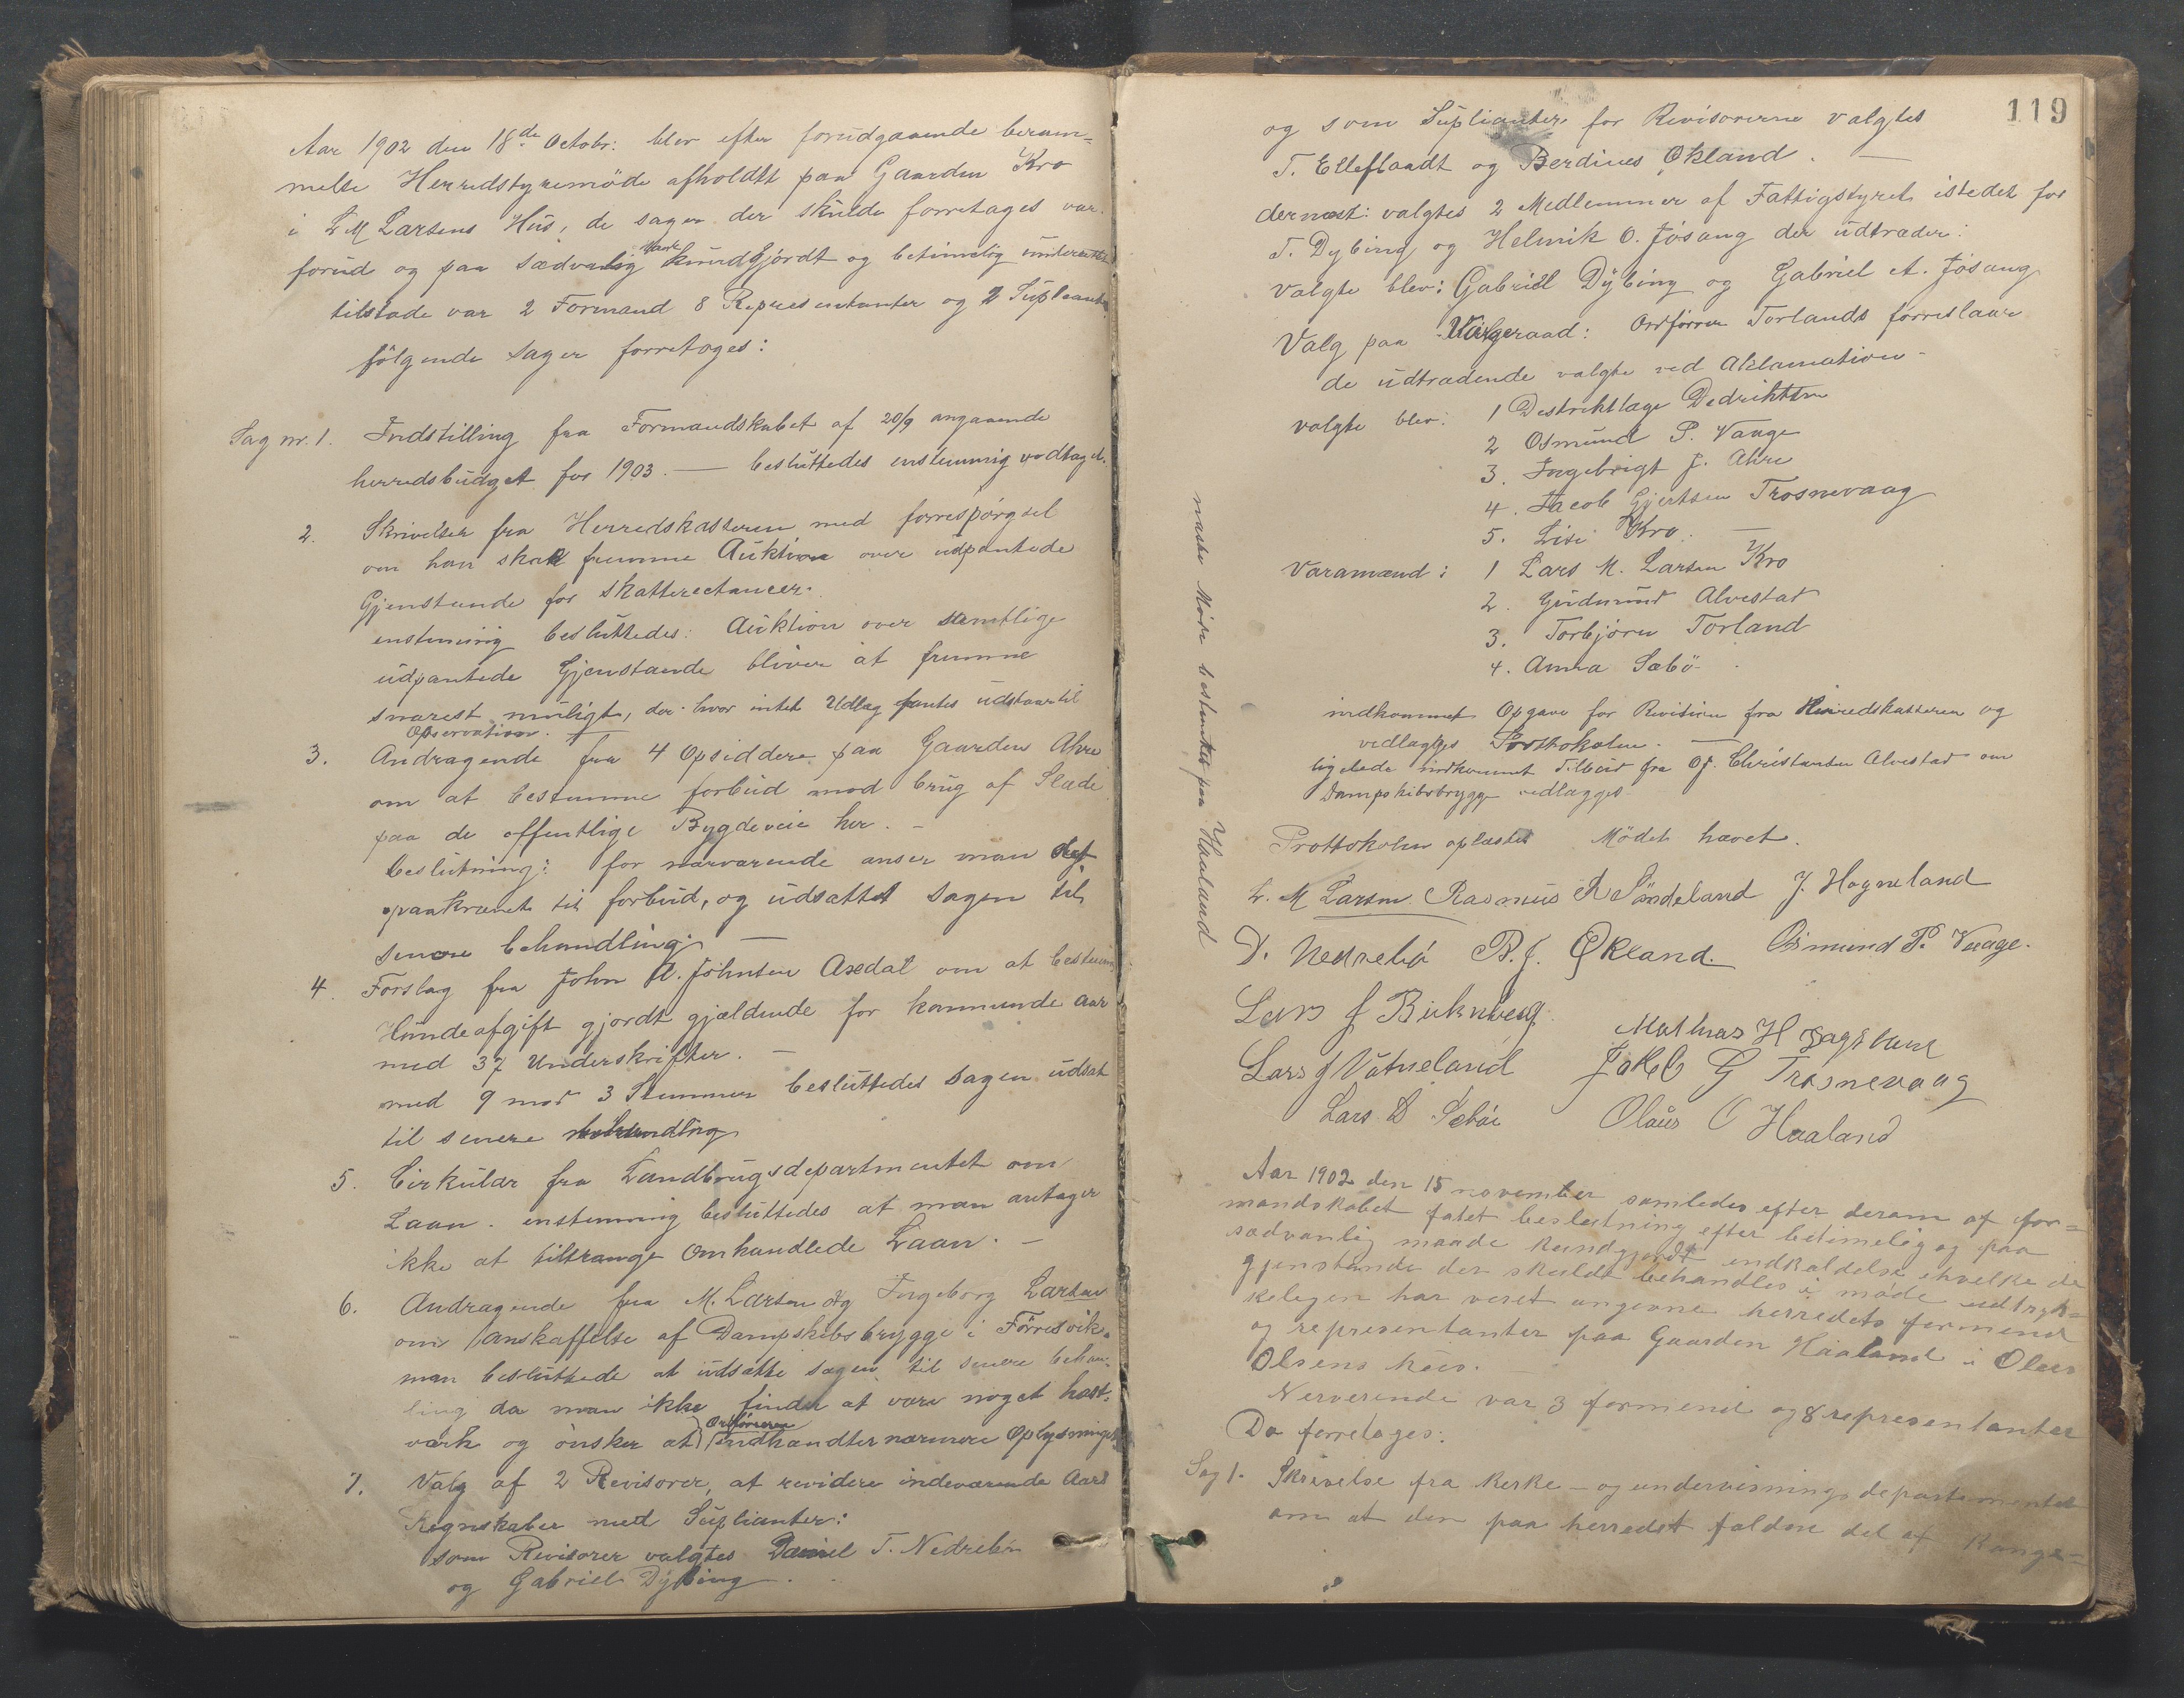 Aar 1902 den 18de Octobr: blev efter forudgaaende beram-
melse Herredstyremöde afholdtt paa Gaarden Kro
i L M Larsens Hus, de sager der skulde forretages var
forud og paa sædvanlig Maade kundgjordt og betimelig underrettet
tilstade var 2 Formænd 8 Representanter og 2 Supleanter
følgende sager forretoges:
Sag nr. 1. Indstilling fra Formandskabet af 20/9 angaaende
herredsbudget for 1903. — besluttedes enstemmig vedtaget.
2. Skrivelse fra Herredskasseren med forrespørgsel
om han skal fremme Auktion over udpantede
Gjenstande for Skatterestancer.
enstemmig besluttedes: Auktion over samtlige
udpantede Gjenstande bliver at fremme
snarest muligt, der hvor intet Udlæg fantes udstaar til
Opservation.
3. Andragende fra 4 Opsiddere paa Gaarden Ahre
om at bestemme forbud mod brug af Slæde
paa de offentlige Bygdeveie her. –
beslutning: for nærværende anser man det
paakrævet til forbud, og udsættet Sagen til
senere behandling. —
4. Forslag fra John A. Johnsen Axedal om at bestemme
Hundeafgift gjordt gjældende for kommende aar
med 37 Underskrifter. –
med 9 mod 3 Stemmer besluttedes Sagen udsat
til senere behandling
5. Cirkulær fra Landbrugsdepartmentet om
Laan. enstemmig besluttedes at man antager
ikke at tiltrænge omhandlede Laan. –
6. Andragende fra M. Larsen og Ingeborg Larsen
om anskaffelse af Dampskibsbrygge i Førresvik.
man besluttede at udsætte sagen til senere behan-
ling da man ikke finder at være noget hast-
værk og ønsker at Ordføreren indhandter nærmere Oplysninger
7. Valg af 2 Revisorer, at revidere indeværende Aars
Regnskaber med Suplianter:
som Revisorer valgtes Daniel T. Nedrebø
og Gabriel Dybing.
119
og som Suplianter for Revisorerne valgtes
T. Elleflaadt og Berdines Økland. —
dernæst: valgtes 2 Medlemmer af Fattigstyret istedet for
T. Dybing og Helmik O. Jøsang der udtræder:
Valgte blev: Gabriel Dybing og Gabriel A. Jøsang
Valg paa Værgeraad: Ordfører Torlands forreslaar
de udtrædende valgte ved Aklamation –
valgte blev: 1 Destriktlæge Dedrichsen
2 Osmund P. Vaage
3. Ingebrigt J. Ahre
4. Jacob Gjertsen Trosnevaag
5. Lise Kro. —
Varamænd: 1 Lars M. Larsen Kro
2. Gudmund Alvestad
3. Torbjørn Torland
4. Anna Sæbø
indkommet Opgave for Revision fra Herredskasseren og
vedlægges Prottokolen. —
ligeledes indkommet Tilbud fra O. Christensen Alvestad om
Dampskibsbrygge vedlægges
Prottokolen oplæstes Mødet hævet.
L. M Larsen Rasmus R Søndeland J. Hogneland
D. Nedrebø B. J. Økland. Osmund P. Vaage.
Lars J Birkneberg Mathias H Fagerland
Lars J Vatneland Jakob G Trosnevaag
Lars D Sebøe Olaus O Haaland
næste Møde bestemtes paa Haaland
Aar 1902 den 15 november samledes efter deram af for-
mandskabet fatet beslutning efter betimelig og paa
sædvanlig maade kundgjordt indkaldelse i hvelke de
gjenstande der skulde behandles i møde udtryk-
keligen har veret angevne herredets formend
og representanter paa Gaarden Haaland i Olaus
Olsens hus.
Nerverende var 3 formend og 8 representanter
Da forretages:
Sag 1. Skrivelse fra Kerke- og undervisningsdepartementet
om at den paa herredet faldne del af Konge-